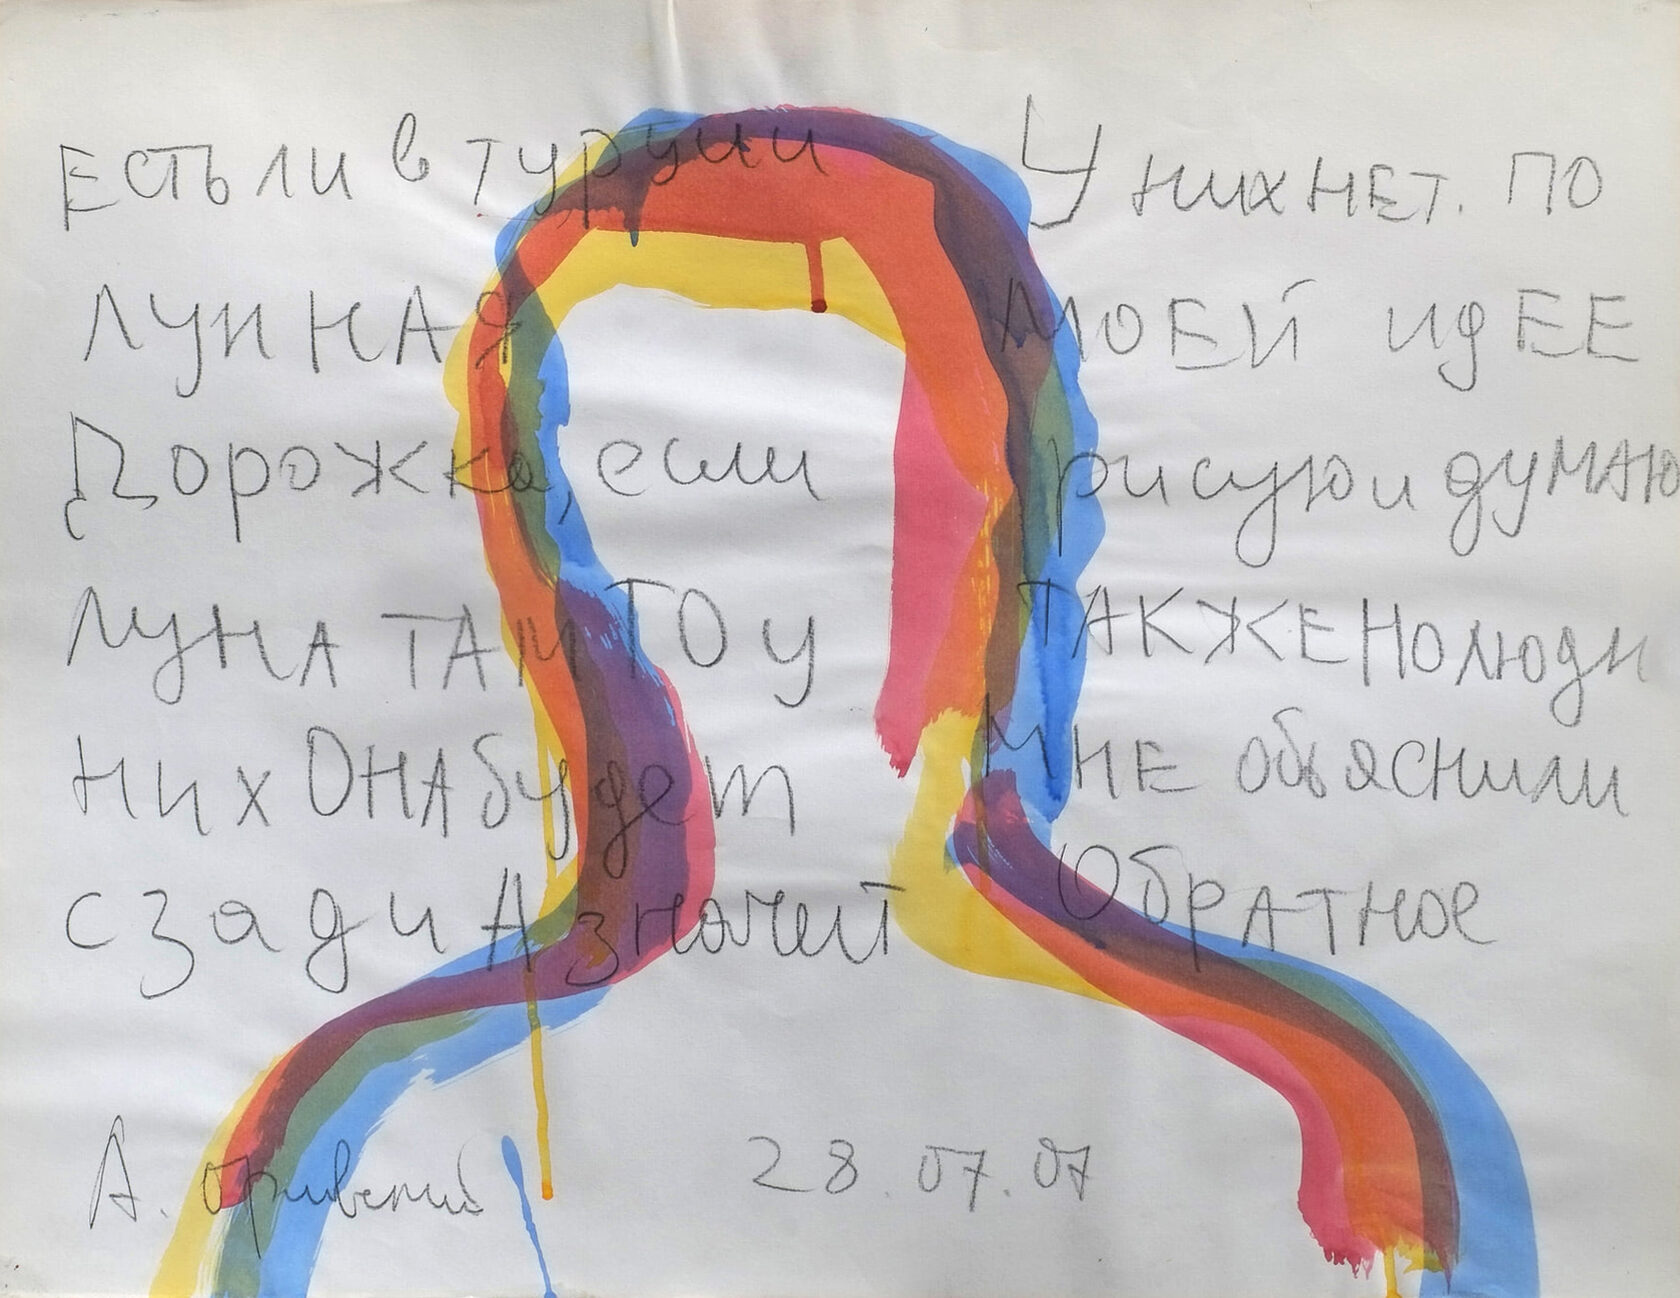 Есть ли в турции
луннАя
Дорожка, если
лунА тАм ТО у
них ОНА будет
сзади А значит
У них нЕт. по
моЕй идЕЕ
рисую и думАю
ТАКЖЕ Но люди
мнЕ объяснили
ОбрАтное
А.
28.07.07